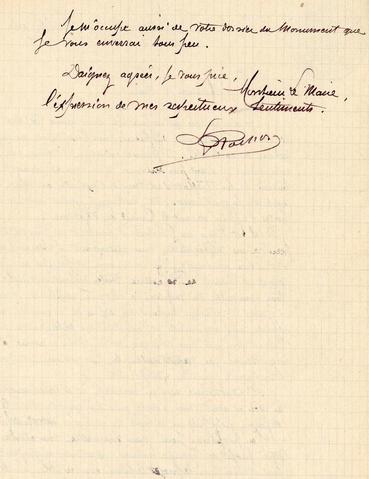 Je m'occupe aussi de votre dossier du Monument que
je vous enverrai sous peu.
Daignez agréer, je vous prie, Monsieur le Maire,
l'expression de mes respectueux sentiments.